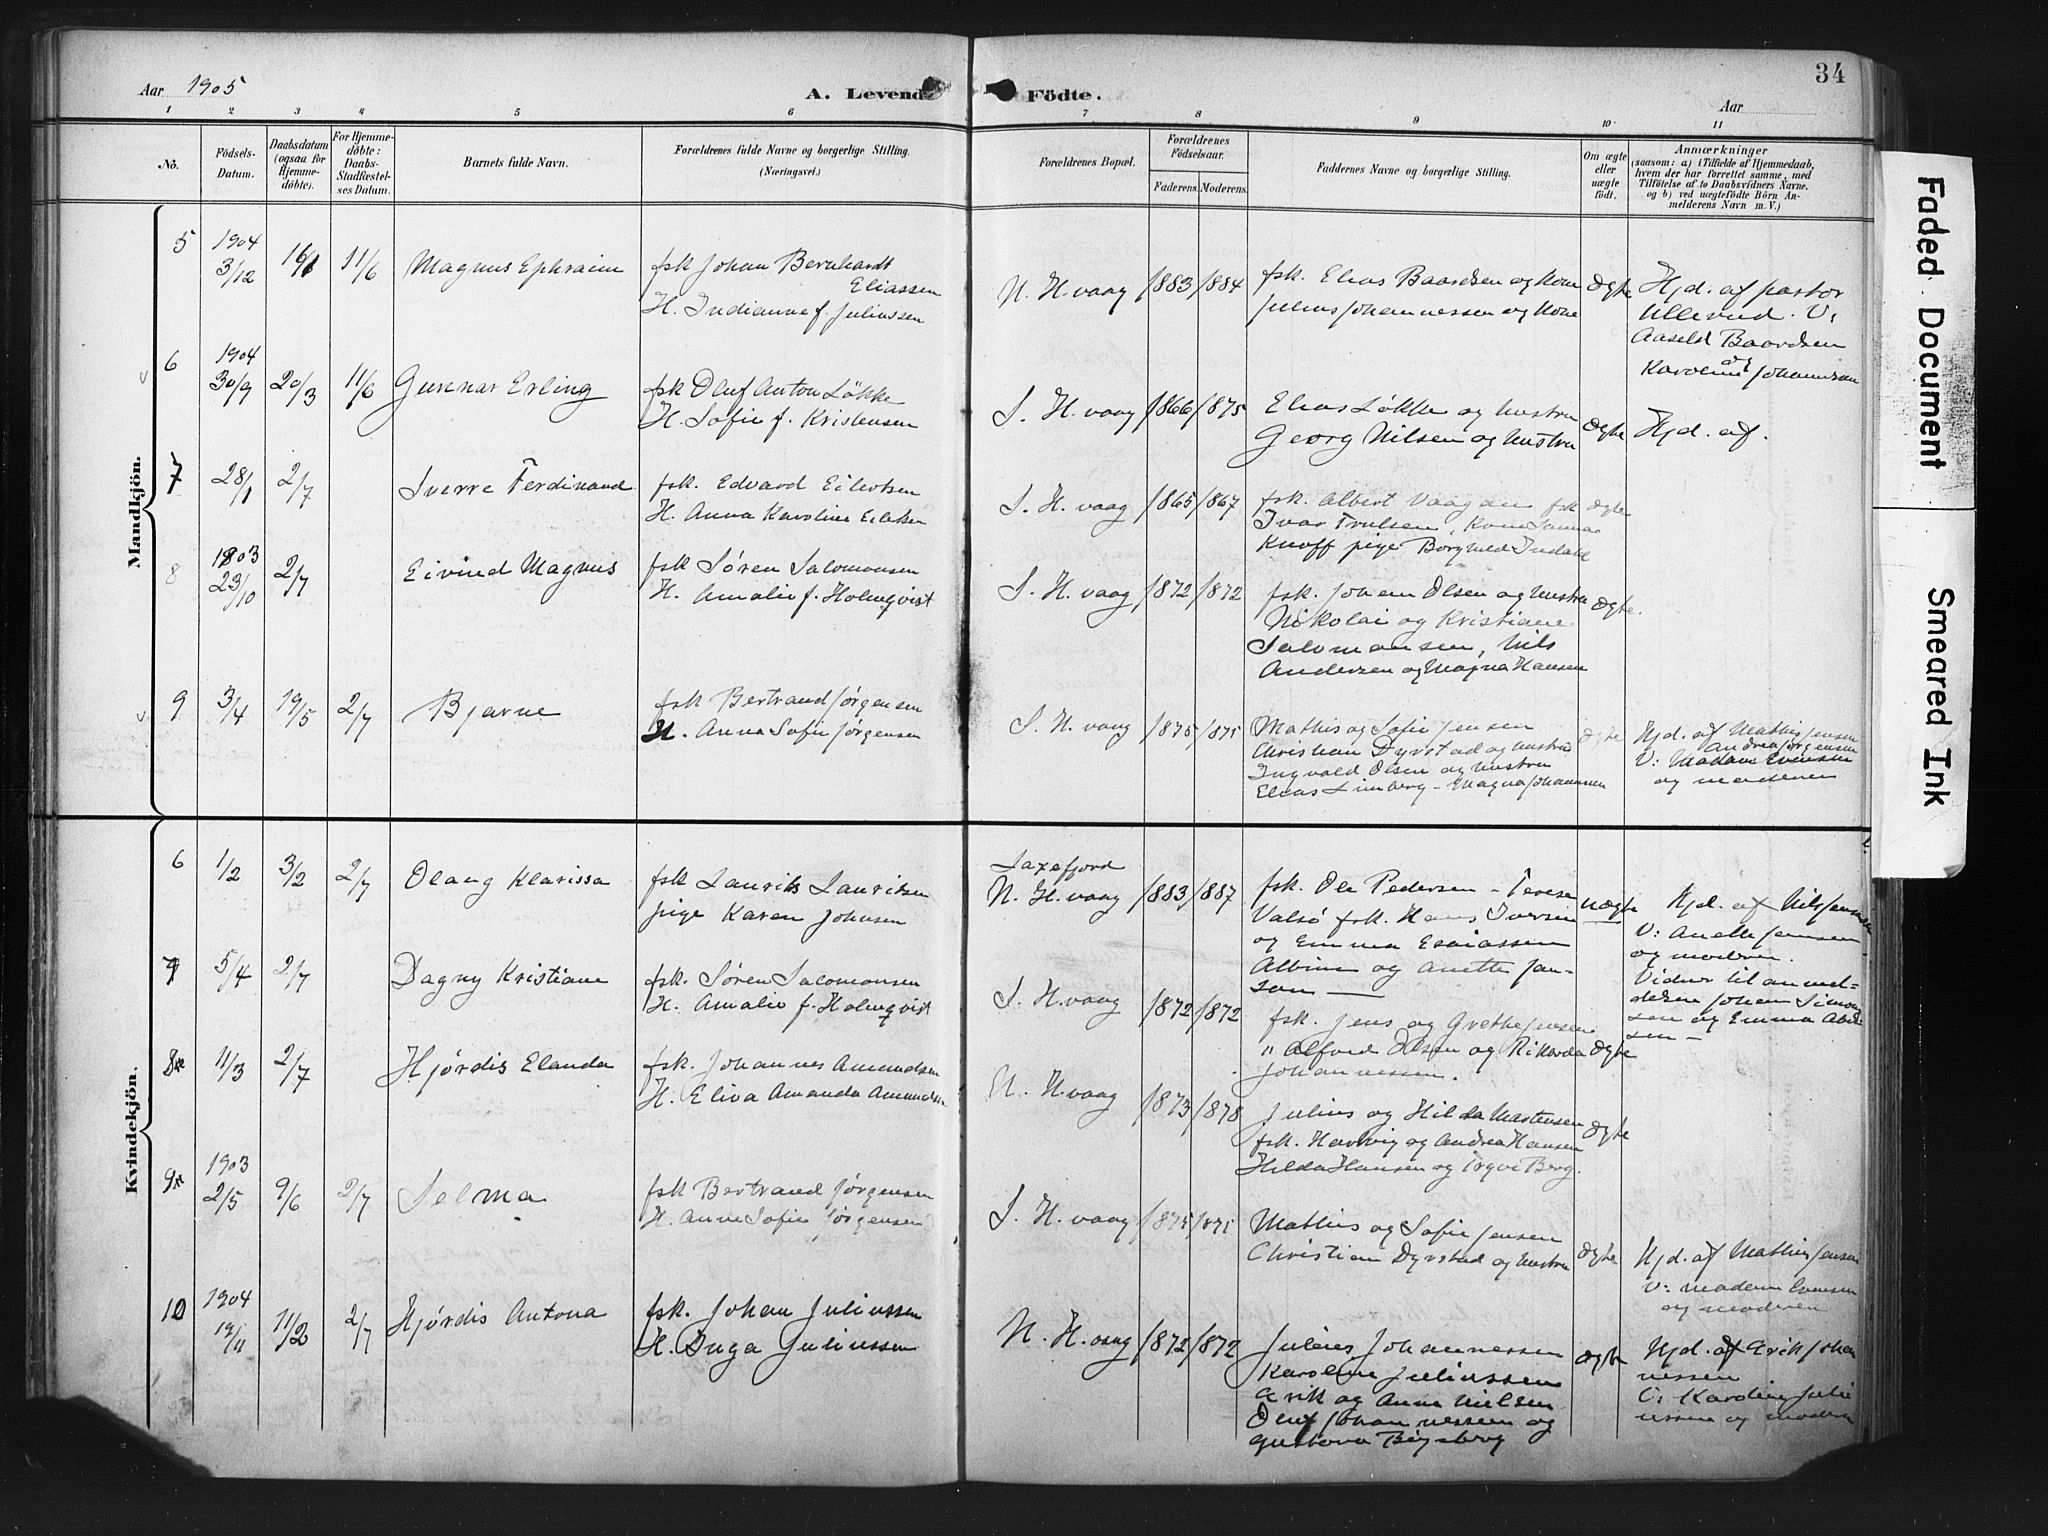 Aar 1905
A. Levend
Födte.
34
Aar
1 2 3 4 5 6 7 8 9 10 11
No.
Födsels-
Datum.
Daabsdatum
(ogsaa för
Hjemme-
döbte).
For Hjemme-
döbte:
Daabs-
Stadfæstel-
ses Datum.
Barnets fulde Navn.
Forældrenes fulde Navne og borgerlige Stilling.
(Næringsvei.)
Forældrenes Bopæl.
Forældrenes
Födselsaar.
Faderens. Moderens.
Faddernes Navne og borgerlige Stilling.
Om ægte
eller
uægte
födt.
Anmærkninger
(saasom: a) i Tilfælde af Hjemmedaab,
hvem der har forrettet samme, med
Tilföielse af to Daabsvidners Navne,
og b) ved uægtefödte Börn An-
melderens Navn m. V.)
Mandkjön.
5 1904
3/12 11/6 Magnus Ephraim
fsk Johan Bernhardt
Eliassen
H. Indianna f. Juliussen
N. H.vaag 1883 1884
fsk. Elias Baardsen og Kone
Julius Johannessen og Kone
ægte
Hjd. af pastor
Ullerud. V:
Aaseld Baardsen
og
Karoline Johannsen
6 1904
30/9 20/3 11/6 Gunnar Erling
fsk Oluf Anton Løkke
H. Sofie f. Kristensen
S. H.vaag 1866 1875
Elias Løkke og hustru
Georg Nilsen og hustru
ægte Hjd. af.
7 28/1 2/7 Sverre Ferdinand
fsk. Edvard Eilertsen
H. Anna Karoline Eilertsen
S. H.vaag 1865 1867
fsk. Albert Vaagan fsk ægte
Ivar Trulsen, Kone Sanna
Knoff pige Borghild Indahl
8 1903
23/10 2/7 Eivind Magnus
fsk Søren Salomonsen
H. Amalie f. Holmqvist
S. H.vaag 1872 1872
fsk. Johan Olsen og hustru ægte.
Nikolai og Kristiane
Salomonsen, Nils
Andersen og Magna Hansen
9 3/4 19/5 2/7 Bjarne
fsk Bertrand Jørgensen
H. Anna Sofie Jørgensen
S. H.vaag 1875 1875
Mathis og Sofie Jensen
Christian Dyrstad og hustru
Ingvald Olsen og hustru
Elias Limberg - Magna Johannesen
ægte
Hjd. af Mathis Jensen
Andrea Jørgensen
V: Madam Evensen
og moderen
Kvindekjön.
6 1/2 3/2 2/7 Olaug Klarissa
fsk Laurits Lauritsen
pige Karen Johnsen
Laxefjord
N. H.vaag 1883 1887
fsk. Ole Pedersen - Terese
Valsø fsk. Hans Iversen
og Emma Esaiassen
Albine og Anette Jan-
sen —
uægte
Hjd. af Nils Jensen
V: Anette Jensen
og moderen.
Vidner til anmel-
delsen Johan Simon-
sen og Emma
sen —
7 5/4 2/7 Dagny Kristiane
fsk. Søren Salomonsen
H. Amalie f. Holmqvist
S. H.vaag 1872 1872
fsk. Jens og Grethe Jensen
" Alfred Olsen og Rikarda ægte
Johannessen.
8 11/3 2/7 Hjørdis Elanda
fsk. Johannes Amundsen
H. Eliva Amanda Amundsen
N. H.vaag 1873 1878
Julius og Hilda Mortensen
fsk. Hartvig og Andrea Hansen
Hilda Hansen og Trygve Berg.
ægte
9 1903
2/5 9/6 2/7 Selma
fsk Bertrand Jørgensen
H. Anne Sofie Jørgensen
S. H.vaag 1875 1875
Mathis og Sofie Jensen
Christian Dyrstad og hustru
ægte
Hjd. af Mathis Jensen
V: madam Evensen
og moderen
10 1904
19/11 11/2 2/7 Hjørdis Antona
fsk. Johan Juliussen
H. Inga Juliussen
N. H.vaag 1872 1872
Julius Johannessen
Karoline Juliussen
Erik og Anne Nielsen
Oluf Johannessen og
Gustava Bigseberg
ægte
Hjd. af Erik Johan
nessen
V: Karoline Juli
ussen og moderen
Faded Document
Smeared Ink